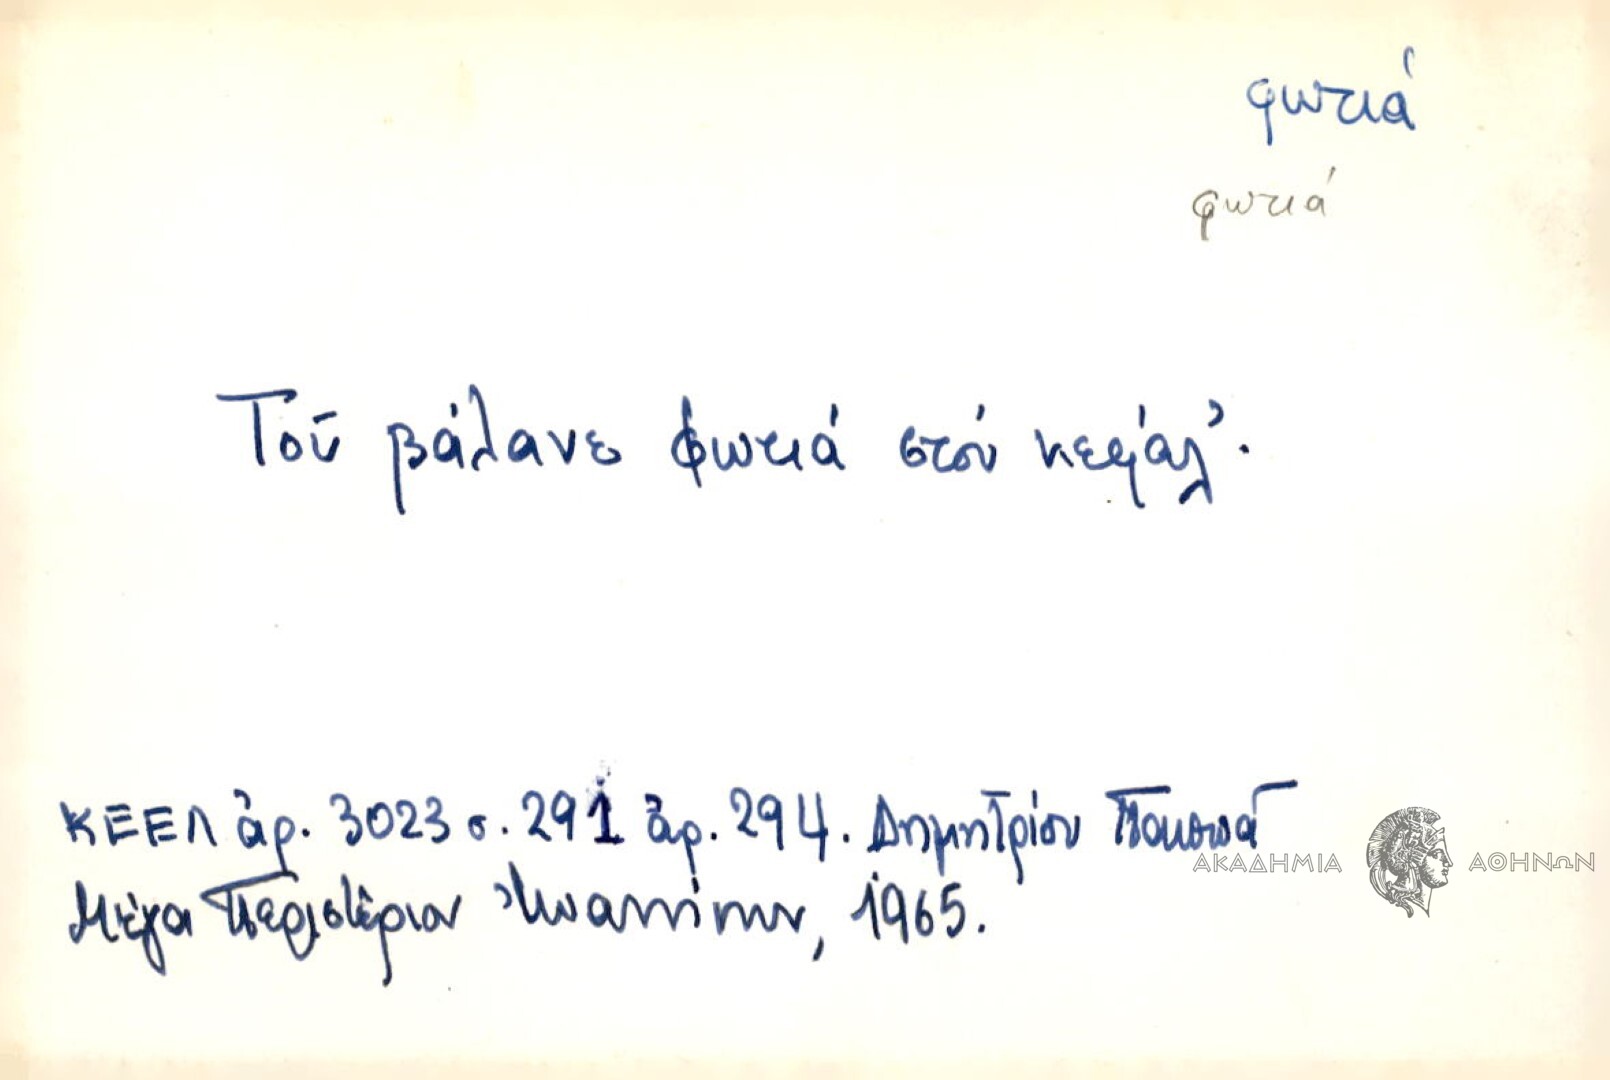 φωτιά
φωτιά
Τοῦ βάλανε φωτιά στού κεφάλ'.
ΚΕΕΛ ἀρ. 3023 σ. 291 ἀρ. 294. Δημητρίου
ΑΚΑΔΗΜΙΑ ΑΘΗΝΩΝ
Μέγα Περιστέριον Ἰωαννίνων, 1965.